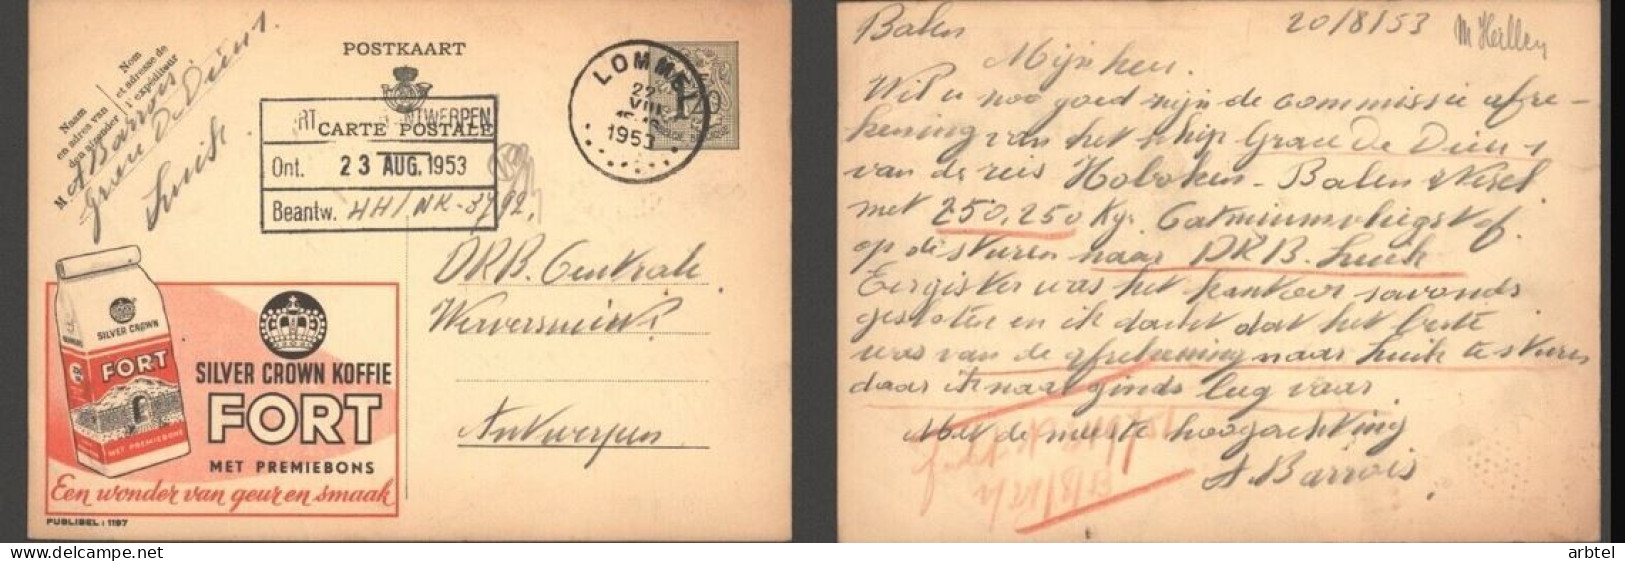 POSTKAART
CARTE POSTALE
Nom
et adresse de
l'expéditeur
Naam
en adres van
den afzender
M A Barrois
Grace De Dieu 1.
Luik
ANTWERPEN
Ont. 23 AUG. 1953
Beantw. HH/NK-3792
LOMMEL
22
VIII
1953
DRB. Centrale
Antwerpen
SILVER CROWN
FORT
MET PREMIEBONS
SILVER CROWN KOFFIE
FORT
MET PREMIEBONS
Een wonder van geur en smaak
PUBLIBEL : 1197
Balen 20/8/53
Mijn heer.
Wil u zoo goed zijn de commissie afre-
kening van het schip Grace De Dieu 1
van de reis Hoboken - Balen Wezel
met 250,250 Kgr
op de sturen naar DRB. Luik
Eergister was het kantoor savonds
gesloten en ik dacht dat het beste
was van de afrekening naar Luik te sturen
daar ik naar ginds leeg vaar
Met de meeste hoogachting
A. Barrois.
arbtel